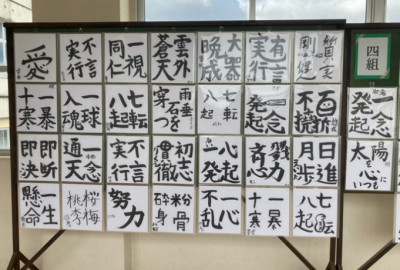 愛
不言実行
一視同仁
雲外蒼天
大器晩成
有言実行
四組
一暴十寒
一球入魂
七転八起
雨垂れ石を穿つ
七転八起
一念発起
百折不撓
一念発起
即断即決
一念通天
不言実行
初志貫徹
戮力斉心
日進月歩
太陽を心にいつも
一生懸命
桜梅桃李
努力
粉骨砕身
一心不乱
一暴十寒
七転八起